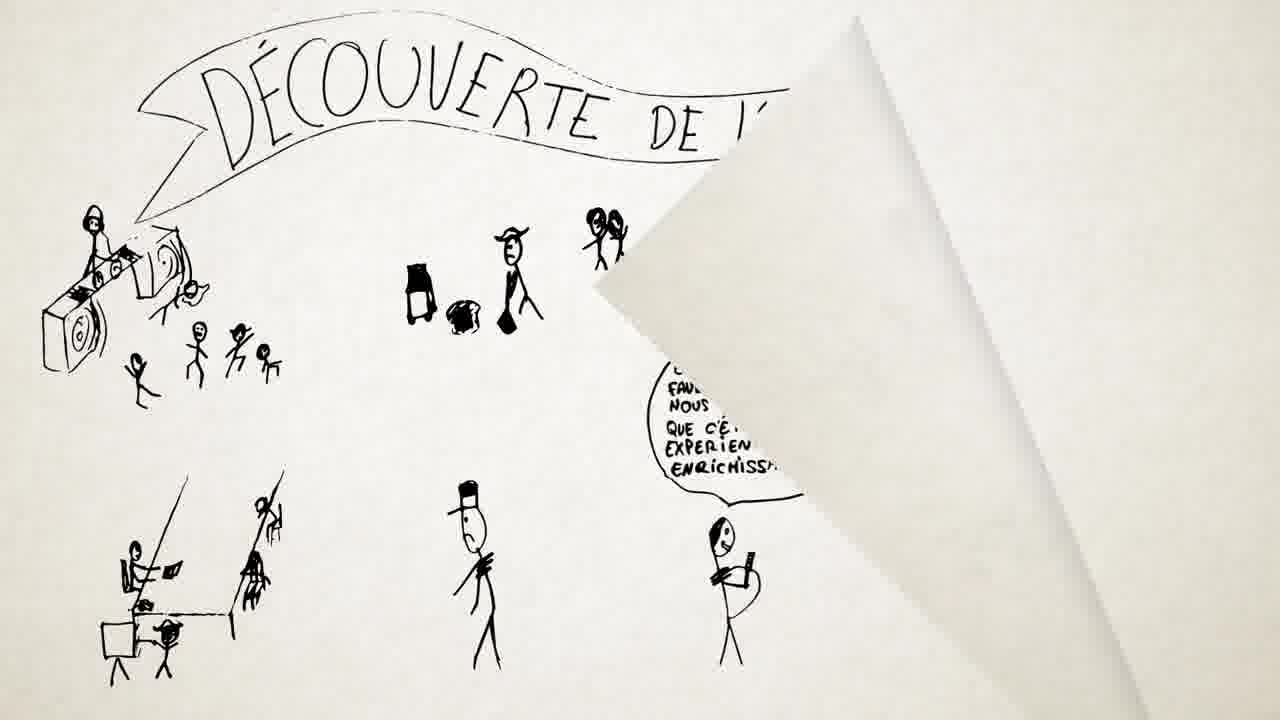 DÉCOUVERTE DE L'
NOUS
QUE C'É
EXPERIEN
ENRICHISSA